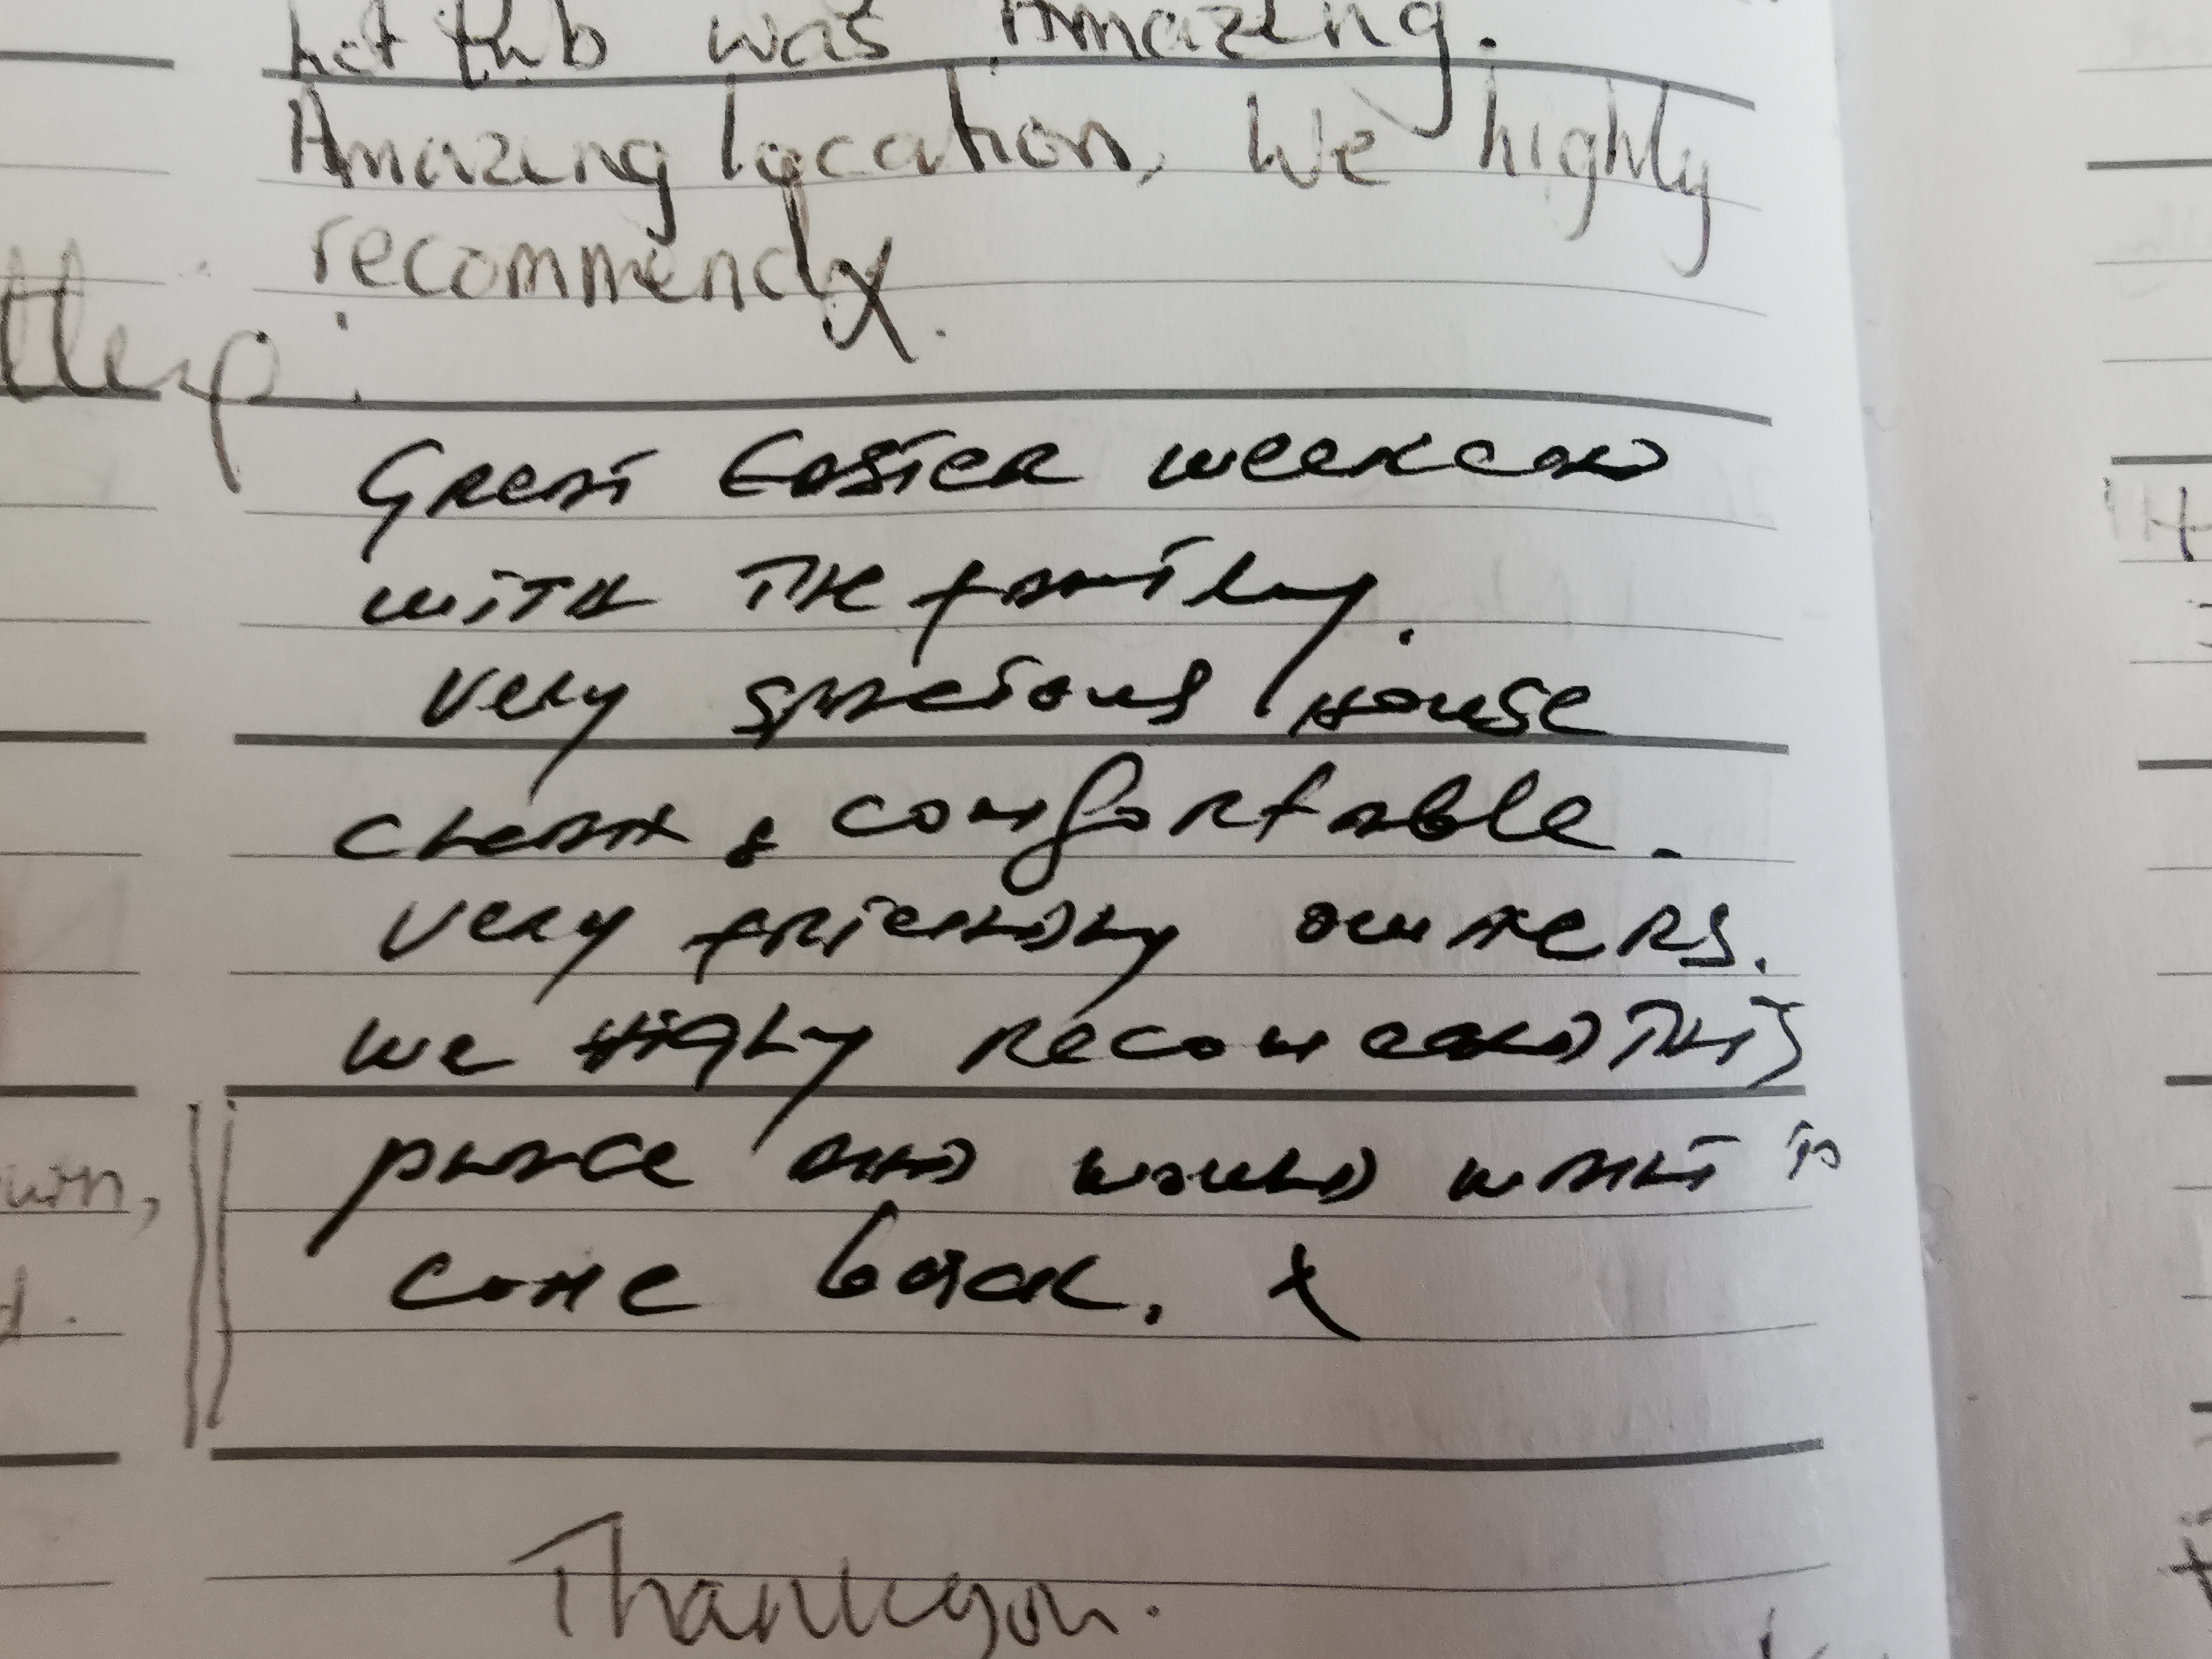 hot tub was Amazing.
Amazing location, We highly
recommend x.
Great Easter weekend
with the family.
very spacious house
clean & comfortable.
very friendly owners.
we highly recomeend this
place and would want to
come back. x
Thankyou.